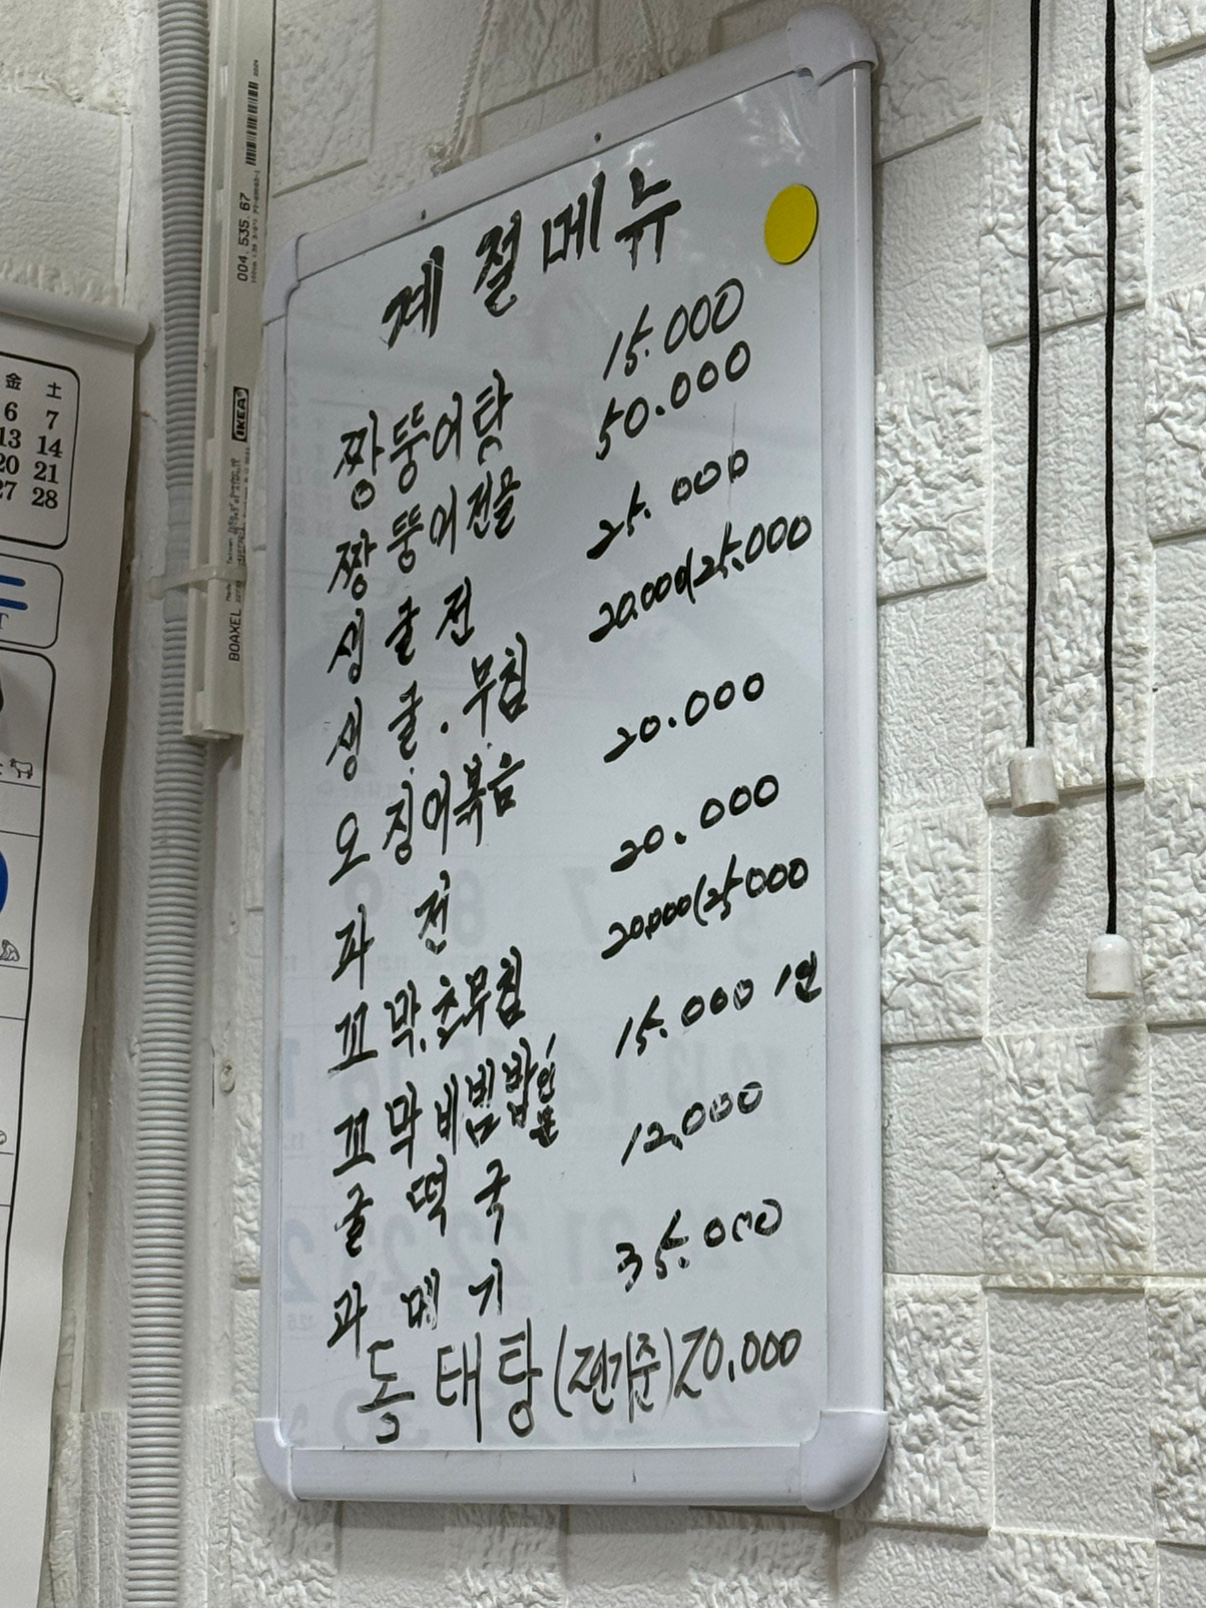 계절메뉴
짱뚱어탕 15.000
짱뚱어전골 50.000
생굴전 25.000
생굴.무침 20.000/25.000
오징어볶음 20.000
파전 20.000
꼬막.초무침 20.000/25.000
꼬막비빔밥 1인분 15.000 1인
굴떡국 12,000
과메기 35.000
동태탕(전기준)20.000
金 土
6 7
13 14
20 21
27 28
004.535.67
IKEA
BOAXEL